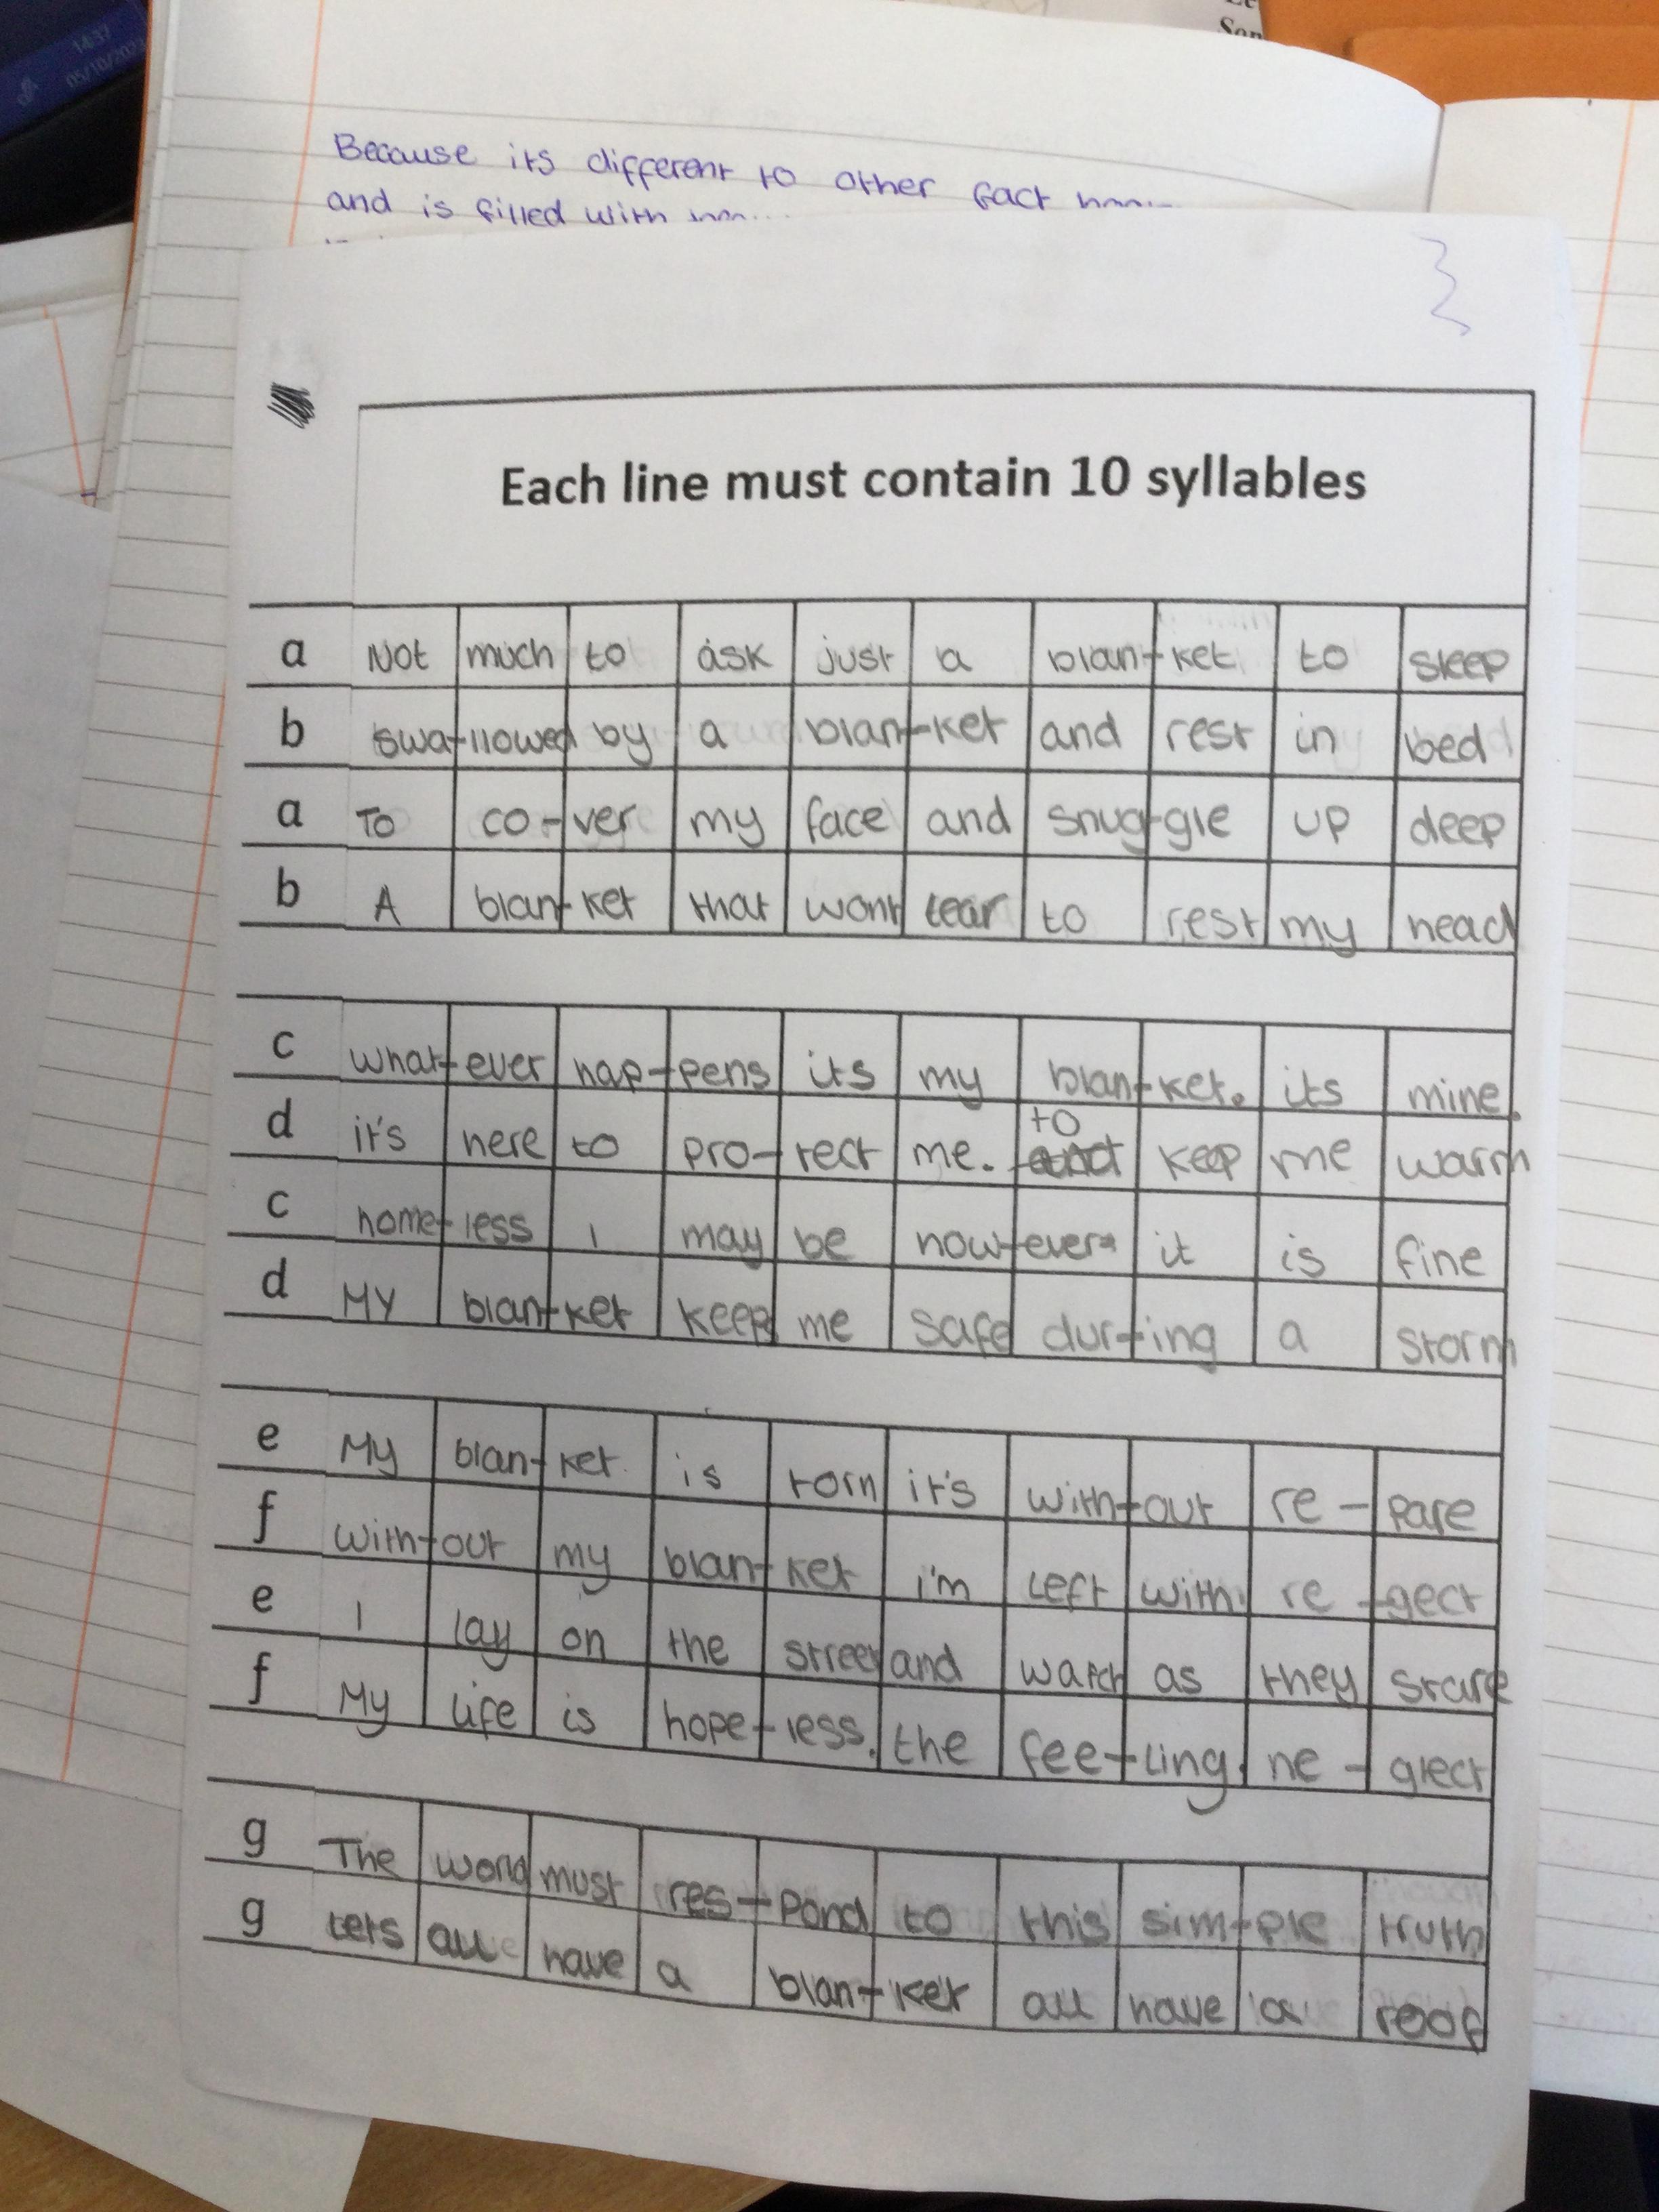 14:37
05/10/202
Son
Because its different to other fact
and is filled with
Each line must contain 10 syllables
a Not much to ask just a blan-ket to sleep
b swa-llowed by a blan-ket and rest in bed
a To co-ver my face and snug-gle up deep
b A blan-ket that wont tear to rest my head
c what-ever hap-pens its my blan-ket. its mine.
d it's here to pro-tect me. to keep me warm
c home-less I may be how-ever it is fine
d My blan-ket keeps me safe dur-ing a storm
e My blan-ket is torn it's with-out re-pare
f with-out my blan-ket i'm left with re-gect
e I lay on the street and watch as they stare
f My life is hope-less. the fee-ling. ne-glect
g The world must res-pond to this sim-ple truth
g lets all have a blan-ket all have a roof